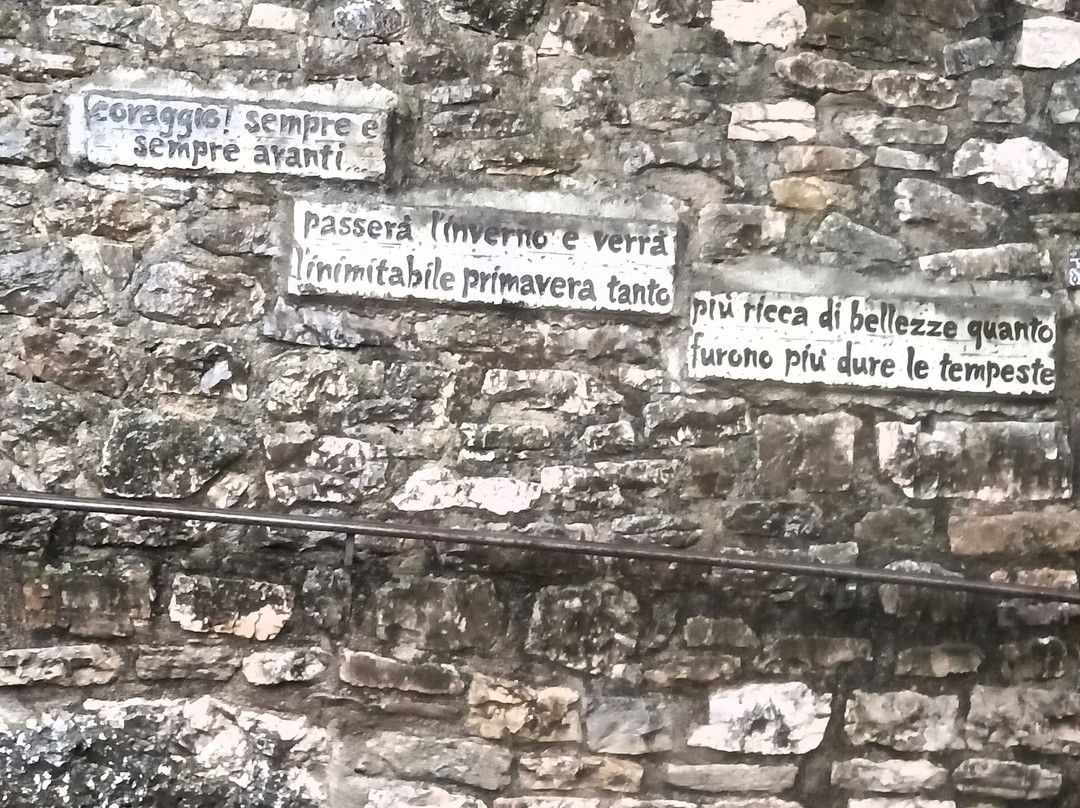 coraggio! sempre e
sempre avanti
passerà l'inverno e verrà
l'inimitabile primavera tanto
più ricca di bellezze quanto
furono più dure le tempeste